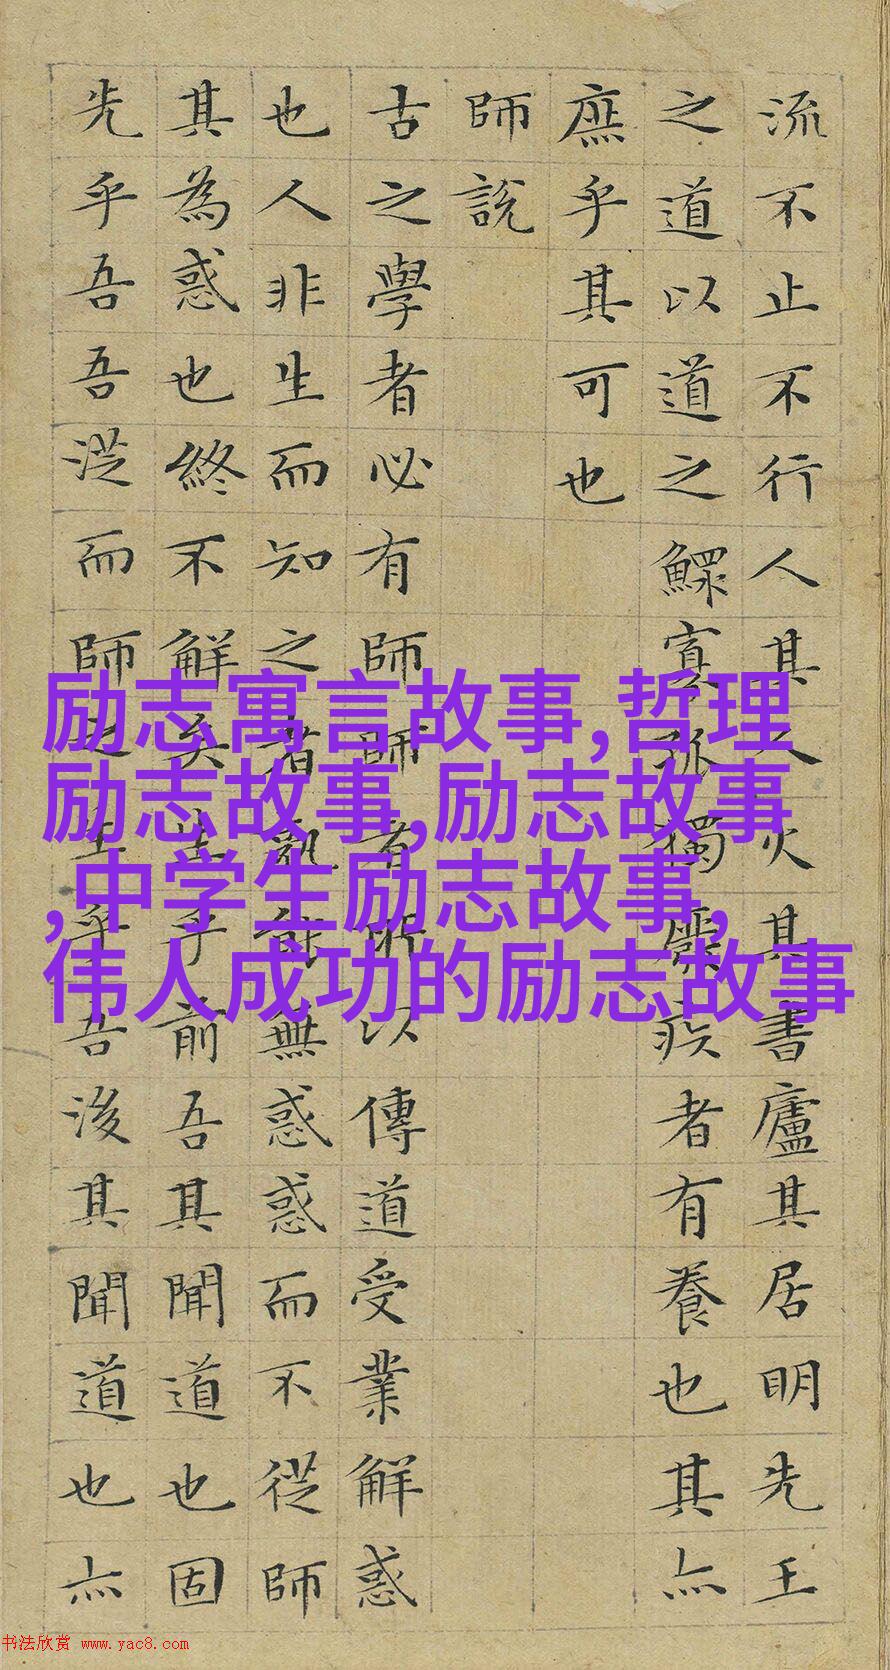 流不止不行人其人火其書廬其居明先王
之道以道之鰥寡孤獨廢疾者有養也其亦
庶乎其可也
師說
古之學者必有師師者所以傳道受業解惑
也人非生而知之者孰能無惑惑而不從師
其為惑也終不解矣生乎前吾其聞道也固
先乎吾吾從而師之生乎吾後其聞道也亦
励志寓言故事,哲理
励志故事,励志故事
,中学生励志故事,
伟人成功的励志故事
书法欣赏 www.yac8.com